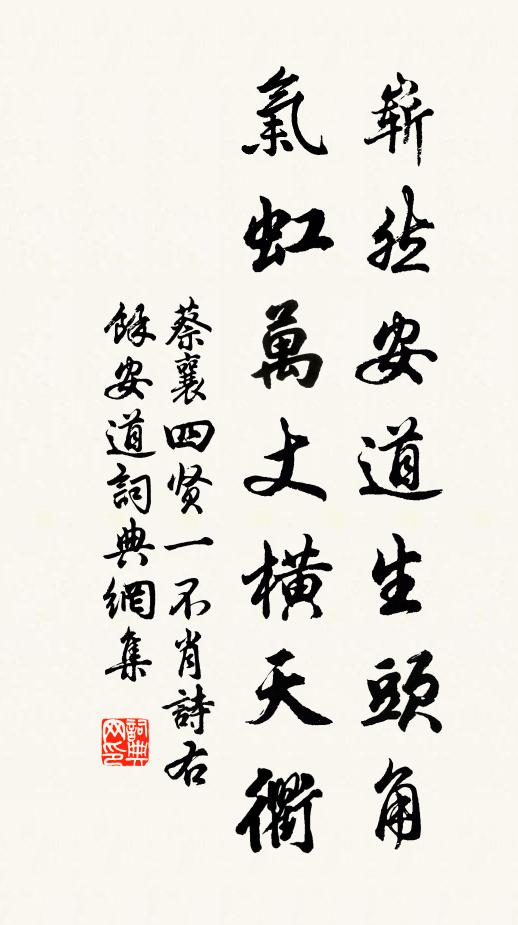 嶄然安道生頭角
氣虹萬丈橫天衢
蔡襄四贤一不肖詩右
餘安道詞典網集
詞典
網印